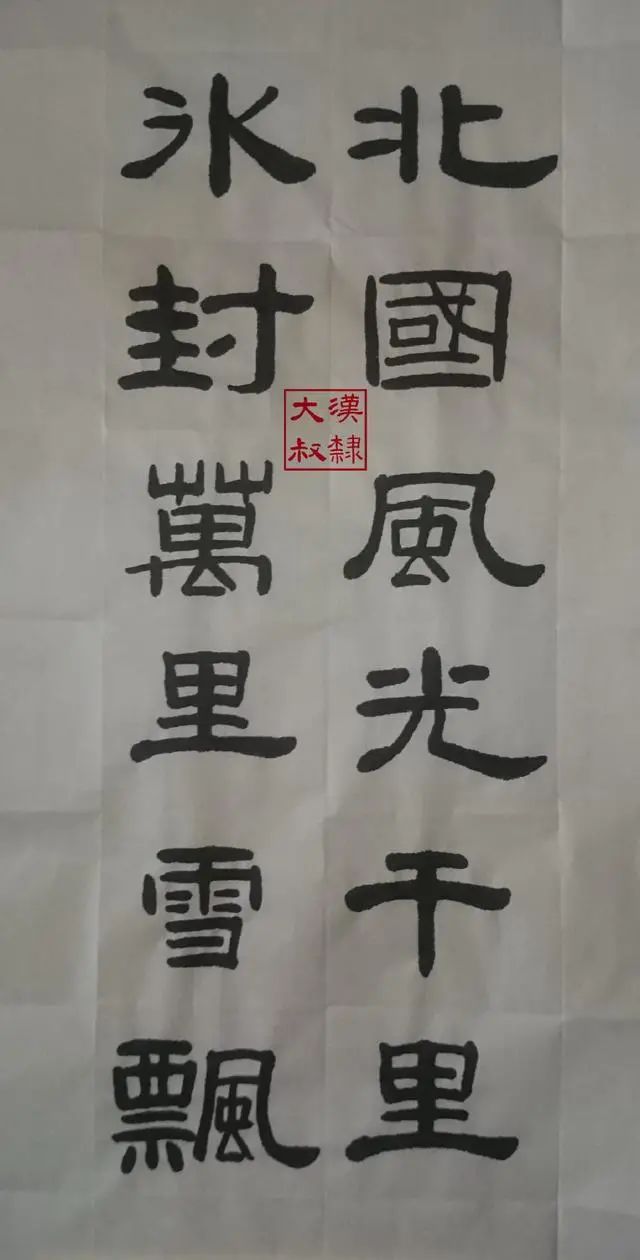 北國風光千里
氷封萬里雪飄
漢隸
大叔